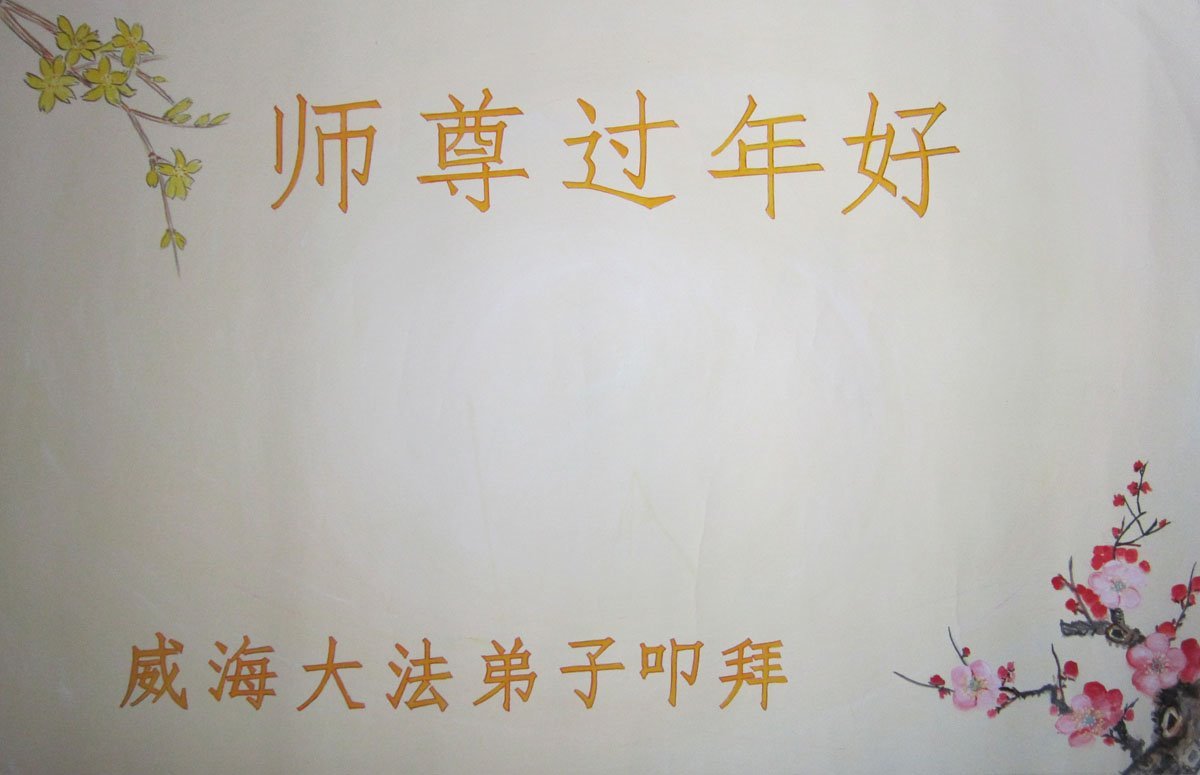 师尊过年好
威海大法弟子叩拜